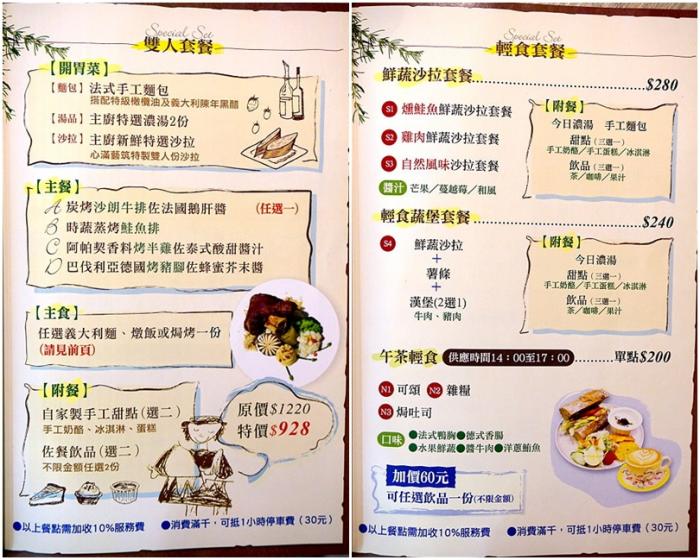 Special Set
雙人套餐
【開胃菜】
【麵包】法式手工麵包
搭配特級橄欖油及義大利陳年黑醋
【湯品】主廚特選濃湯2份
【沙拉】主廚新鮮特選沙拉
心滿藝筑特製雙人份沙拉
【主餐】
A 炭烤沙朗牛排佐法國鵝肝醬 (任選一)
B 時蔬蒸烤鮭魚排
C 阿帕契香料烤半雞佐泰式酸甜醬汁
D 巴伐利亞德國烤豬腳佐蜂蜜芥末醬
【主食】
任選義大利麵、燉飯或焗烤一份
(請見前頁)
【附餐】
自家製手工甜點(選二)
手工奶酪、冰淇淋、蛋糕
佐餐飲品(選二)
不限金額任選2份
原價$1220
特價$928
●以上餐點需加收10%服務費 ●消費滿千，可抵1小時停車費（30元）
Special Set
輕食套餐
鮮蔬沙拉套餐..............................$280
S1 燻鮭魚鮮蔬沙拉套餐
S2 雞肉鮮蔬沙拉套餐
S3 自然風味沙拉套餐
醬汁 芒果／蔓越莓／和風
【附餐】
今日濃湯 手工麵包
甜點（三選一）
手工奶酪／手工蛋糕／冰淇淋
飲品（三選一）
茶／咖啡／果汁
輕食蔬堡套餐..............................$240
S4 鮮蔬沙拉
+
薯條
+
漢堡(2選1)
牛肉、豬肉
【附餐】
今日濃湯
甜點（三選一）
手工奶酪／手工蛋糕／冰淇淋
飲品（三選一）
茶／咖啡／果汁
午茶輕食 供應時間14：00至17：00 .........單點$200
N1 可頌 N2 雜糧
N3 焗吐司
口味 ●法式鴨胸●德式香腸
●水果鮮蔬●醬牛肉●洋蔥鮪魚
加價60元
可任選飲品一份(不限金額)
●以上餐點需加收10%服務費 ●消費滿千，可抵1小時停車費（30元）